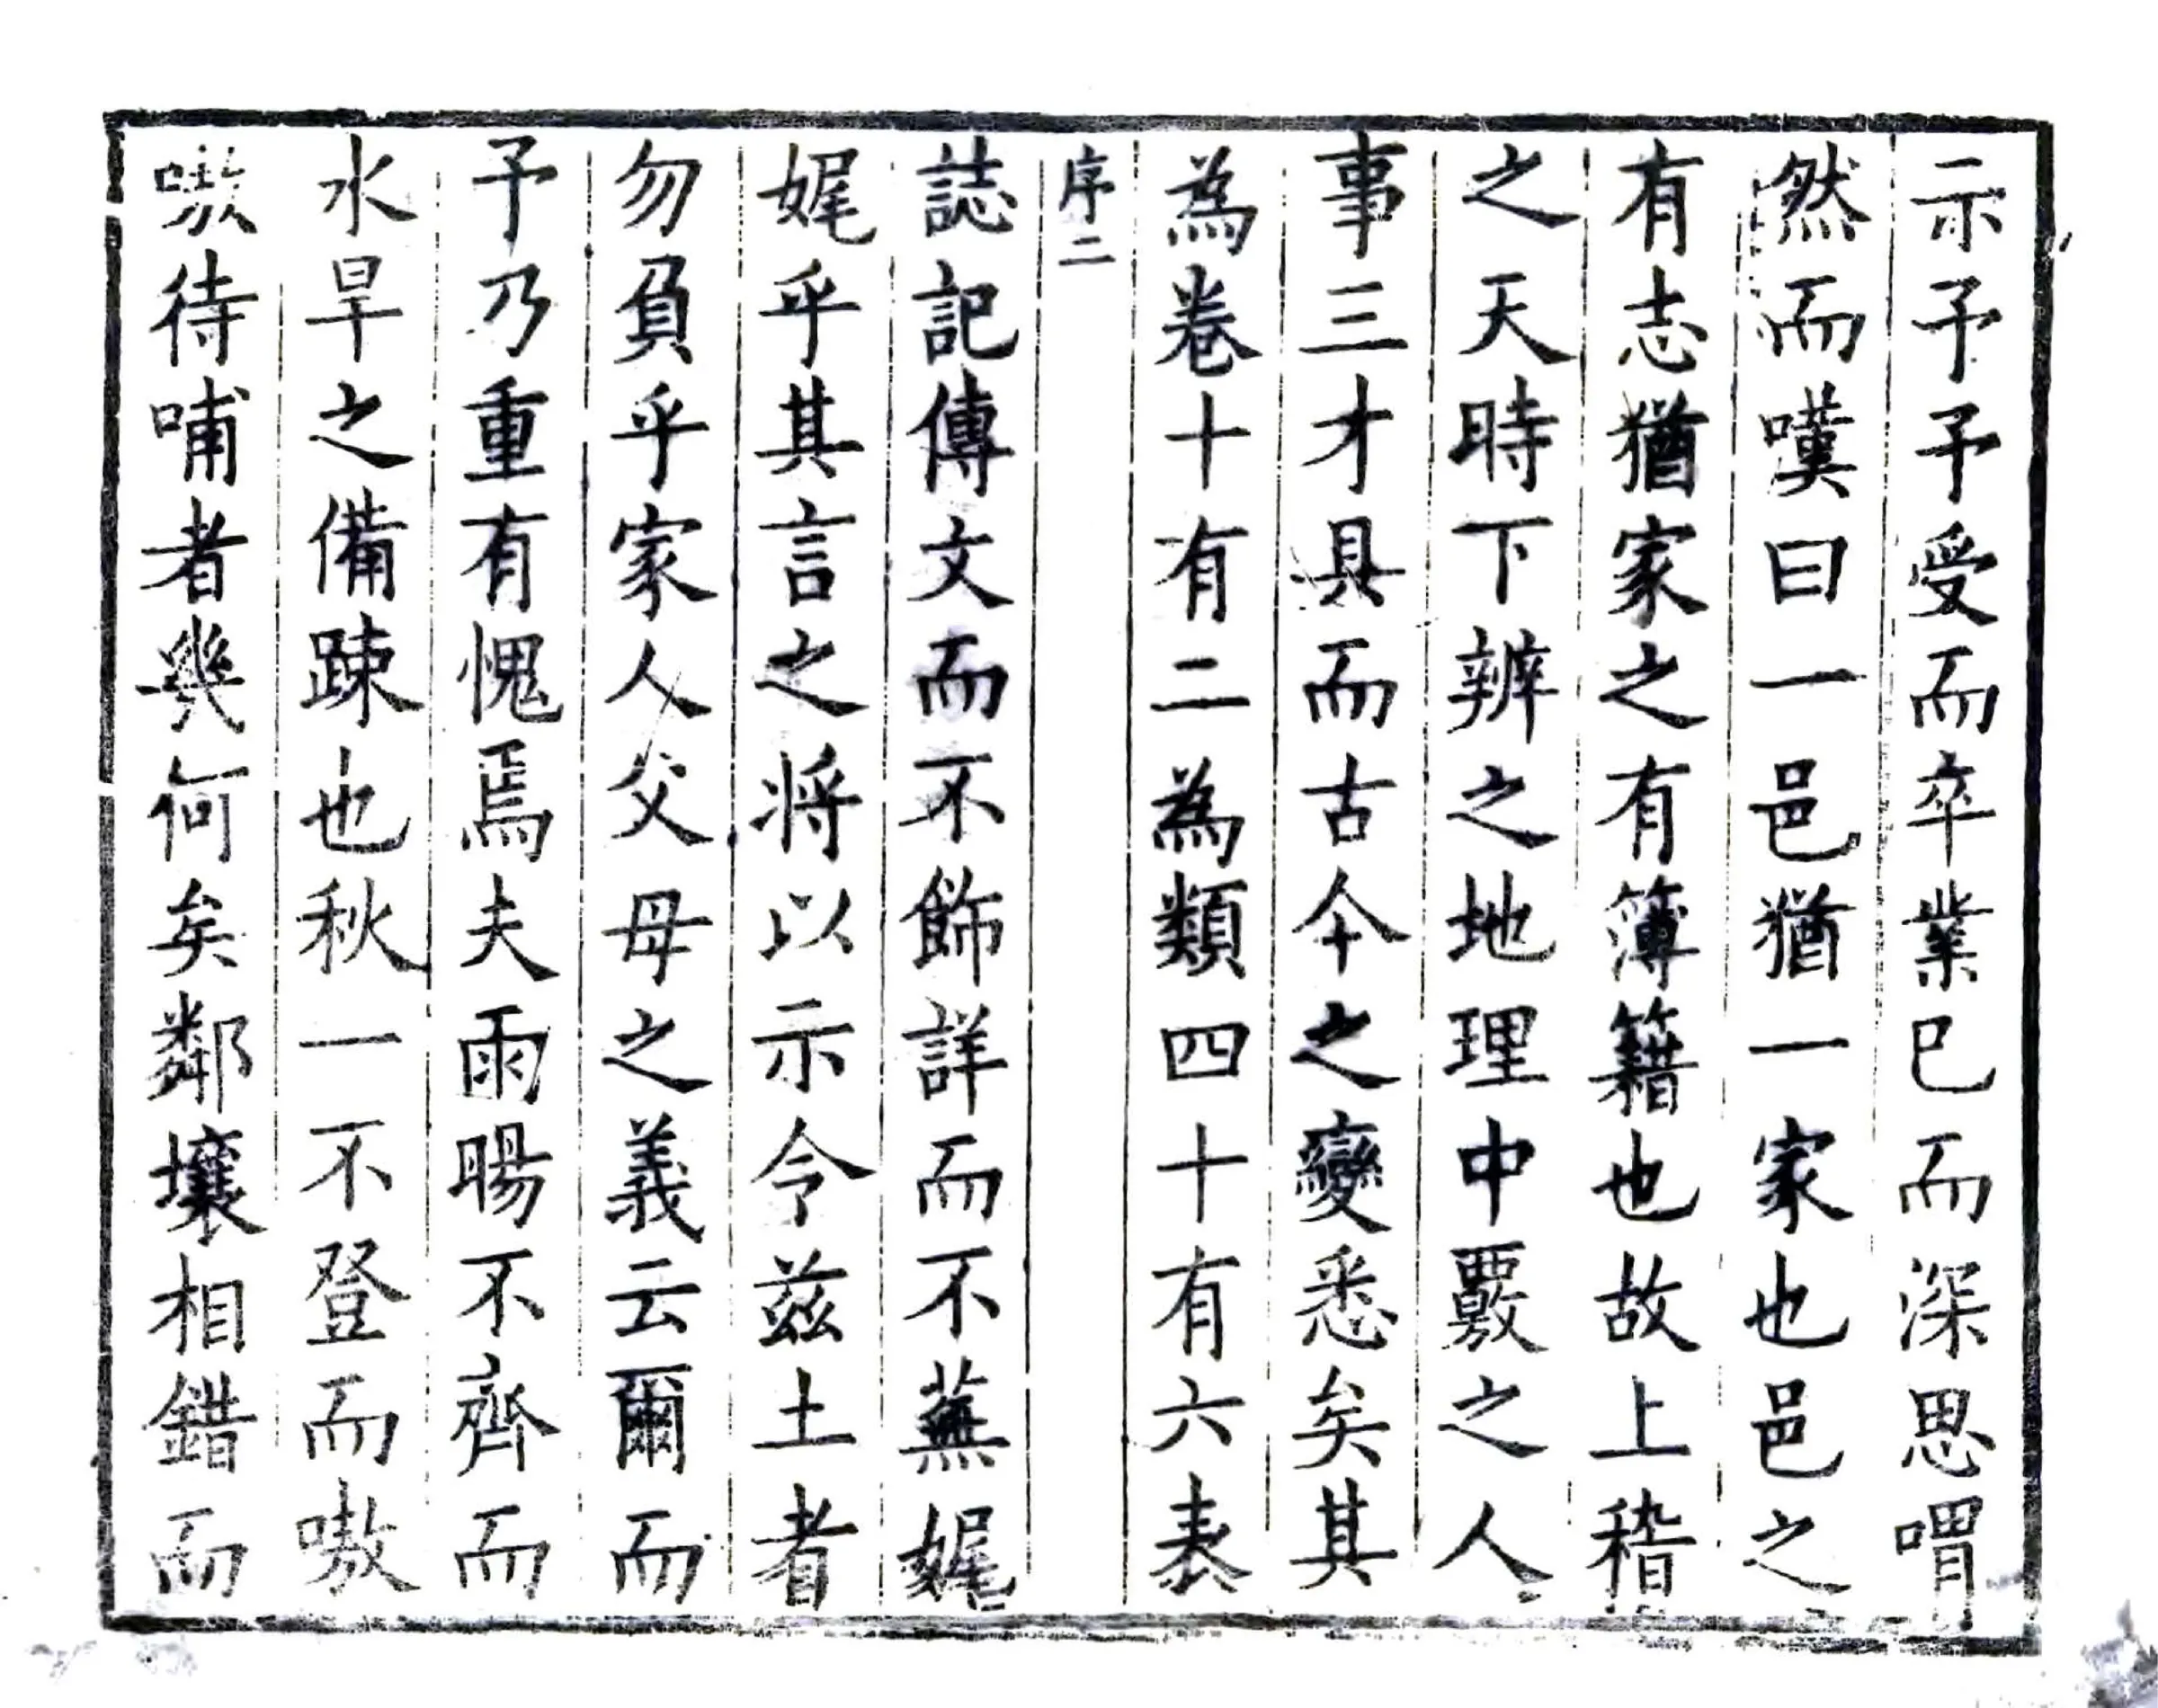 示予予受而卒業已而深思喟
然而嘆曰一邑猶一家也邑之
有志猶家之有簿籍也故上稽
之天時下辨之地理中覈之人
事三才具而古今之變悉矣其
為卷十有二為類四十有六表
序二
誌記傳文而不飾詳而不蕪娓
娓乎其言之将以示令茲土者
勿負乎家人父母之義云爾而
予乃重有愧焉夫雨暘不齊而
水旱之備踈也秋一不登而嗷
嗷待哺者幾何矣鄰壤相錯而